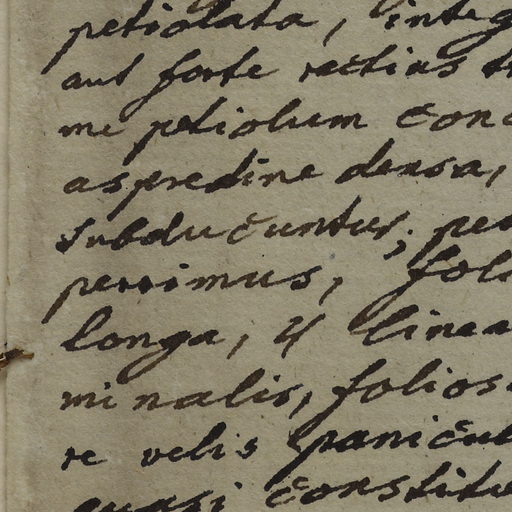 petiolata, integ
aut forte rectius tr
me petiolum conc
aspredine densa,
subducuntur; pet
perrimus, foli
longa, 4 linea
minalis, folios
re velis panicul
quasi constitu